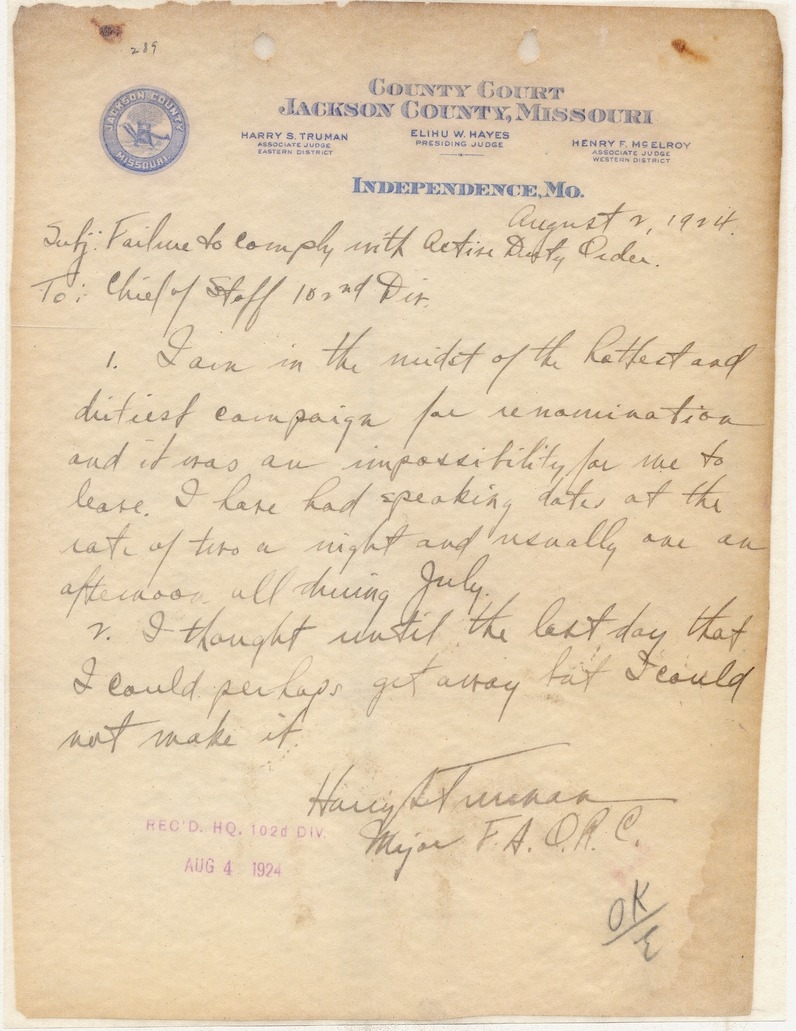 289
COUNTY COURT
JACKSON COUNTY, MISSOURI
JACKSON COUNTY
MISSOURI
HARRY S. TRUMAN
ASSOCIATE JUDGE
EASTERN DISTRICT
ELIHU W. HAYES
PRESIDING JUDGE
HENRY F. MCELROY
ASSOCIATE JUDGE
WESTERN DISTRICT
INDEPENDENCE, MO.
August 2, 1924.
Subj: Failure to comply with Active Duty Order.
To: Chief of Staff 102nd Div.
1. I am in the midst of the hottest and
dirtiest campaign for renomination
and it was an impossibility for me to
leave. I have had speaking dates at the
rate of two a night and usually one an
afternoon all during July.
2. I thought until the last day that
I could perhaps get away but I could
not make it.
Harry S Truman
Major F.A. O.R.C.
REC'D. HQ. 102d DIV.
AUG 4 1924
OK
E